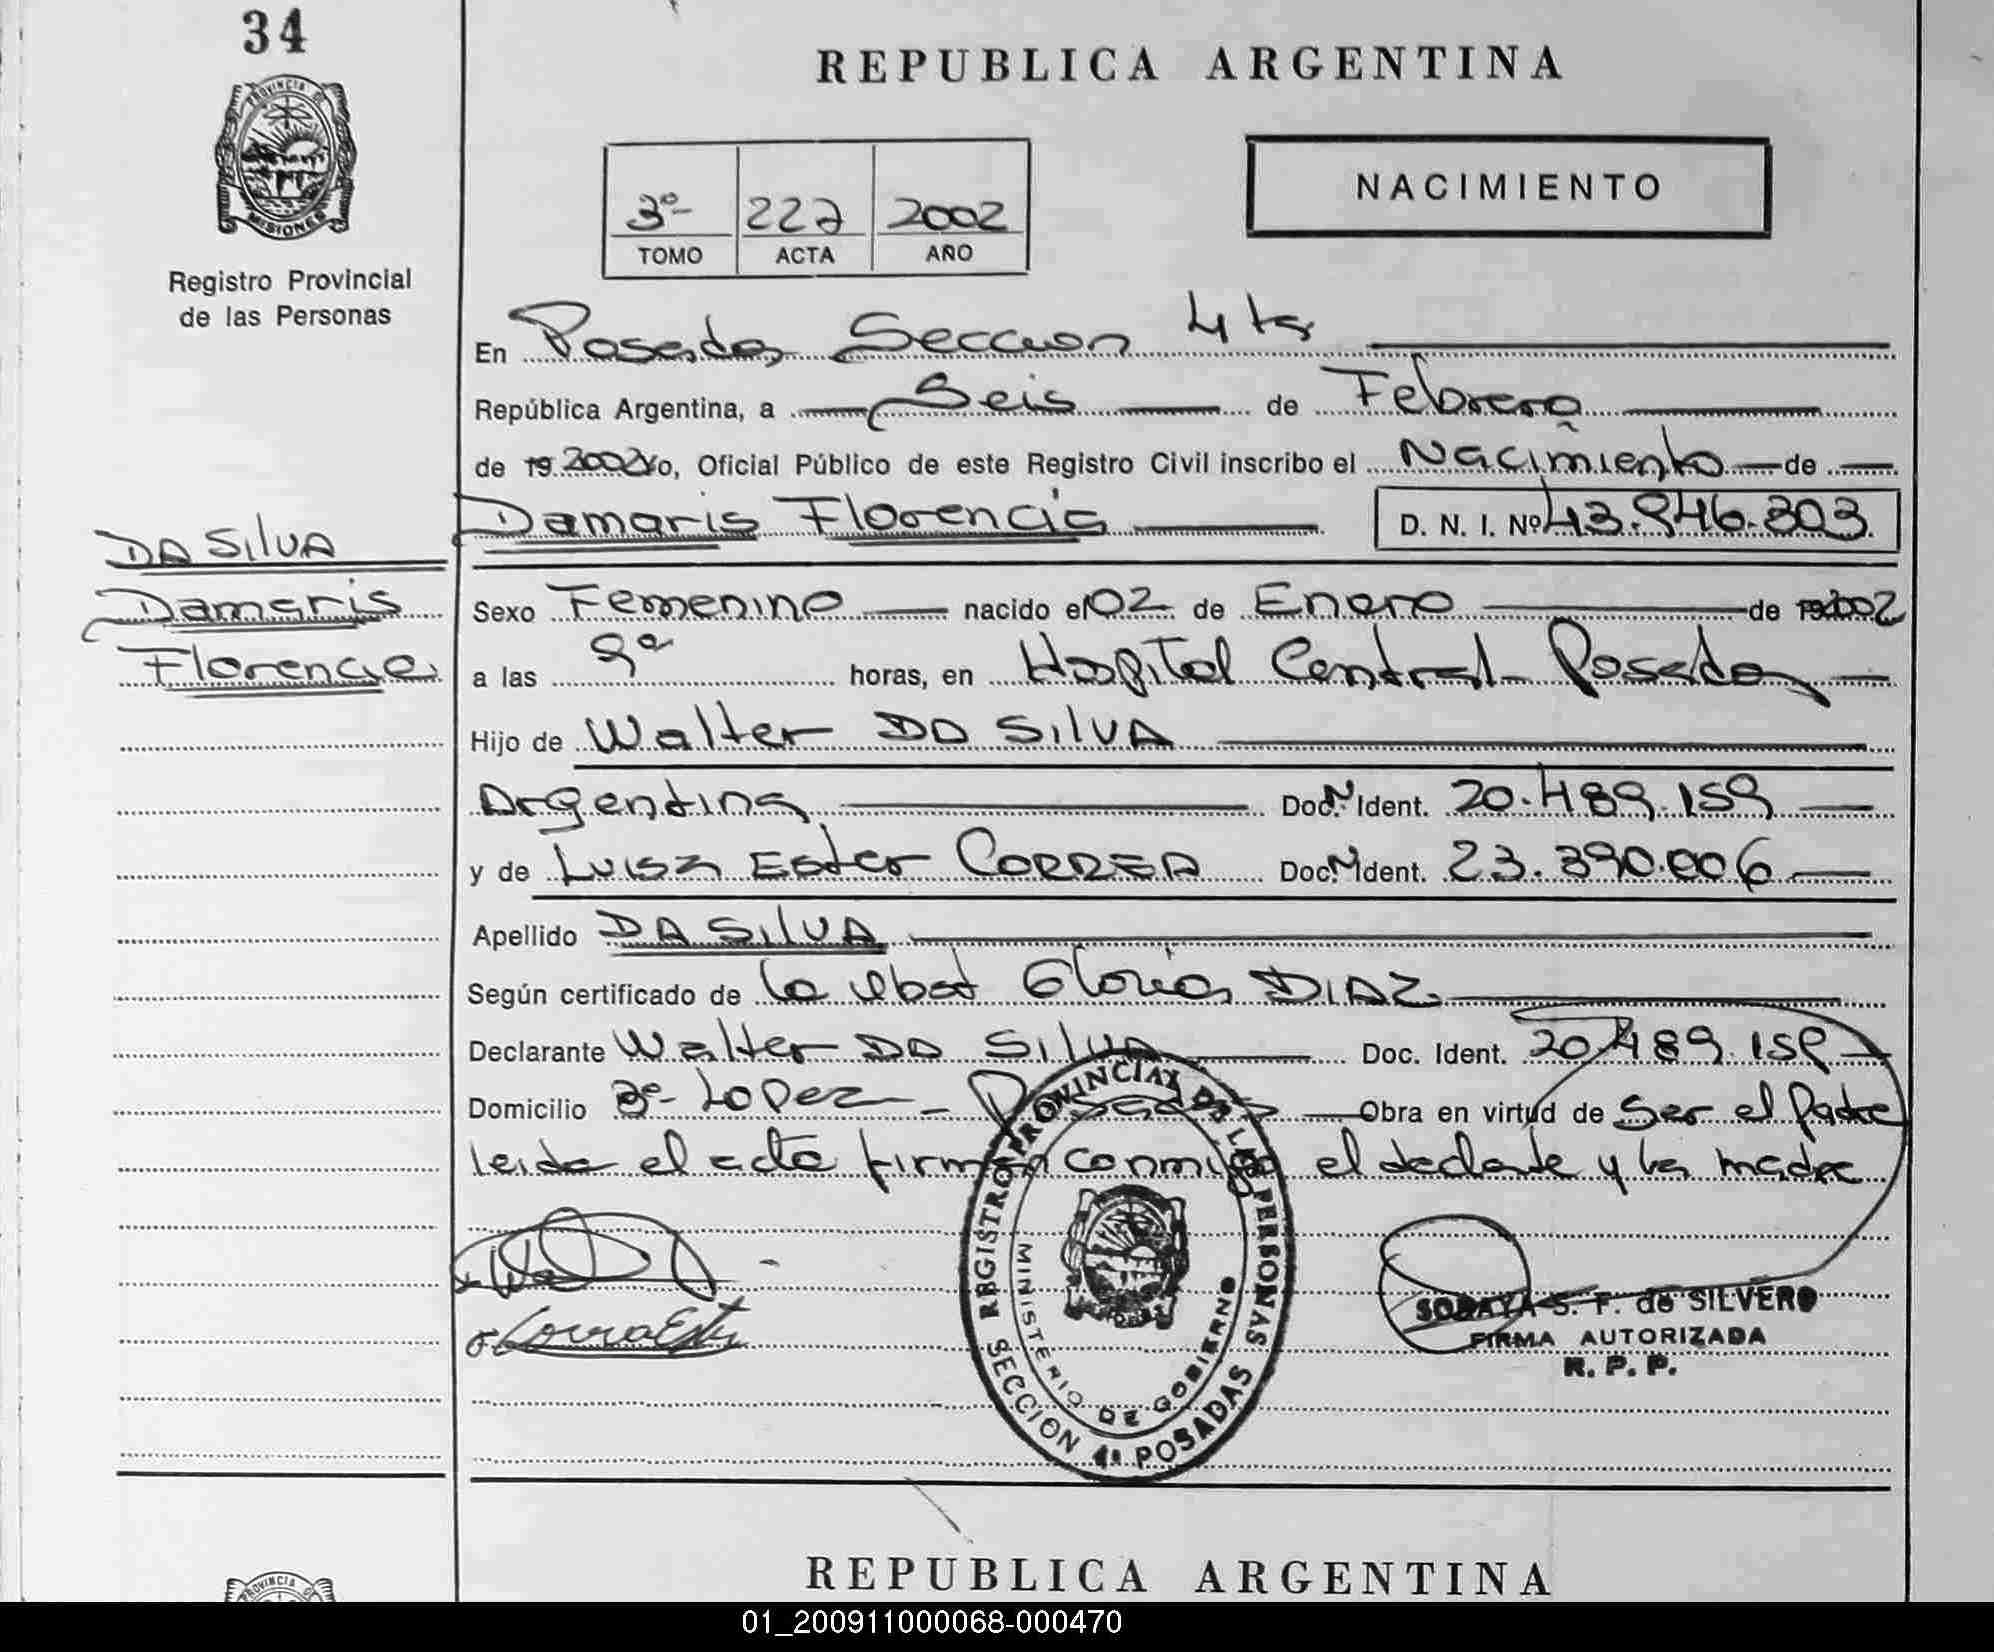 34
REPUBLICA ARGENTINA
PROVINCIA DE
MISIONES
Registro Provincial
de las Personas
NACIMIENTO
3º- 227 2002
TOMO ACTA AÑO
En Posadas Seccion 4ta
República Argentina, a Seis de Febrero
de 19 2002 Yo, Oficial Público de este Registro Civil inscribo el Nacimiento de
Damaris Florencia D. N. I. Nº 43.946.303
DA SILVA
Damaris
Florencia
Sexo Femenino nacido el 02 de Enero de 19 2002
a las 9ª horas, en Hospital Central- Posadas
Hijo de Walter DA SILVA
Argentina Doc. N Ident. 20.489.159
y de Luisa Ester CORREA Doc. N Ident. 23.390.006
Apellido DA SILVA
Según certificado de la obst Gloria DIAZ
Declarante Walter DA SILVA Doc. Ident. 20.489.159
Domicilio Bº- Lopez - Posadas Obra en virtud de Ser el Padre
leida el acta firman conmigo el declante y la madre
REGISTRO PROVINCIAL DE LAS PERSONAS
MINISTERIO DE GOBIERNO
SECCION 4ª POSADAS
Correa Ester
SORAYA S. F. de SILVERO
FIRMA AUTORIZADA
R. P. P.
REPUBLICA ARGENTINA
PROVINCIA D
01_200911000068-000470